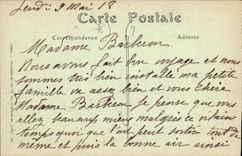 Jeudi 9 Mai 18
Carte Postale
Correspondance
Adresse
Madame Barberon
Nous avons fait bon voyage et nous
sommes très bien installé ma petite
famille va assez bien et vous Chère
Madame Barberon Je pense que vous
allez beaucoup mieux malgrès ce vilain
temps quoi que l'on peut sortir tout de
même et puis la bonne air aussi